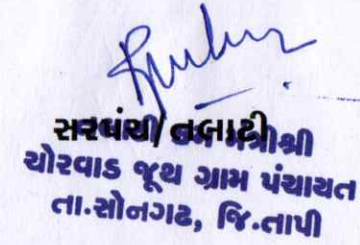 સરપંચ/તલાટી
તલાટી કમ મંત્રીશ્રી
ચોરવાડ જૂથ ગ્રામ પંચાયત
તા.સોનગઢ, જિ.તાપી